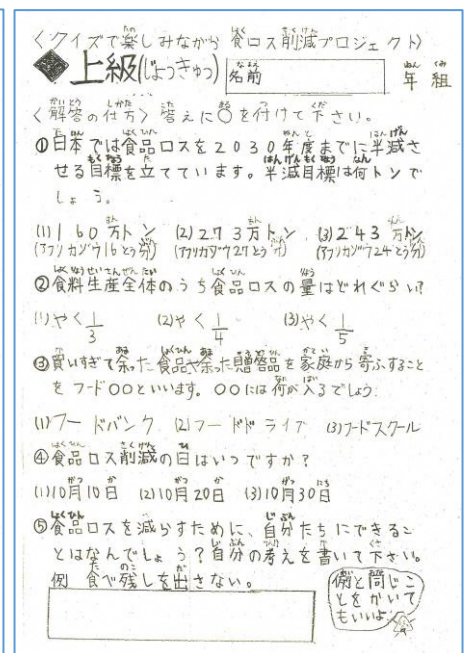 〈クイズで楽しみながら食ロス削減プロジェクト〉
上級(じょっきゅう) 名前 年 組
〈解答の仕方〉答えに○を付けて下さい。
①日本では食品ロスを2030年度までに半減さ
せる目標を立てています。半減目標は何トンで
しょう。
(1)160万トン (2)273万トン (3)243万トン
(アフリカゾウ16とう分) (アフリカゾウ27とう分) (アフリカゾウ24とう分)
②食料生産全体のうち食品ロスの量はどれぐらい?
(1)やく1/3 (2)やく1/4 (3)やく1/5
③買いすぎて余った食品や余った贈答品を家庭から寄ふすること
をフード○○といいます。○○には何が入るでしょう
(1)フードバンク (2)フードドライブ (3)フードスクール
④食品ロス削減の日はいつですか?
(1)10月10日 (2)10月20日 (3)10月30日
⑤食品ロスを減らすために、自分たちにできるこ
とはなんでしょう?自分の考えを書いて下さい。
例 食べ残しを出さない。
例と同じこ
とをかいて
もいいよ